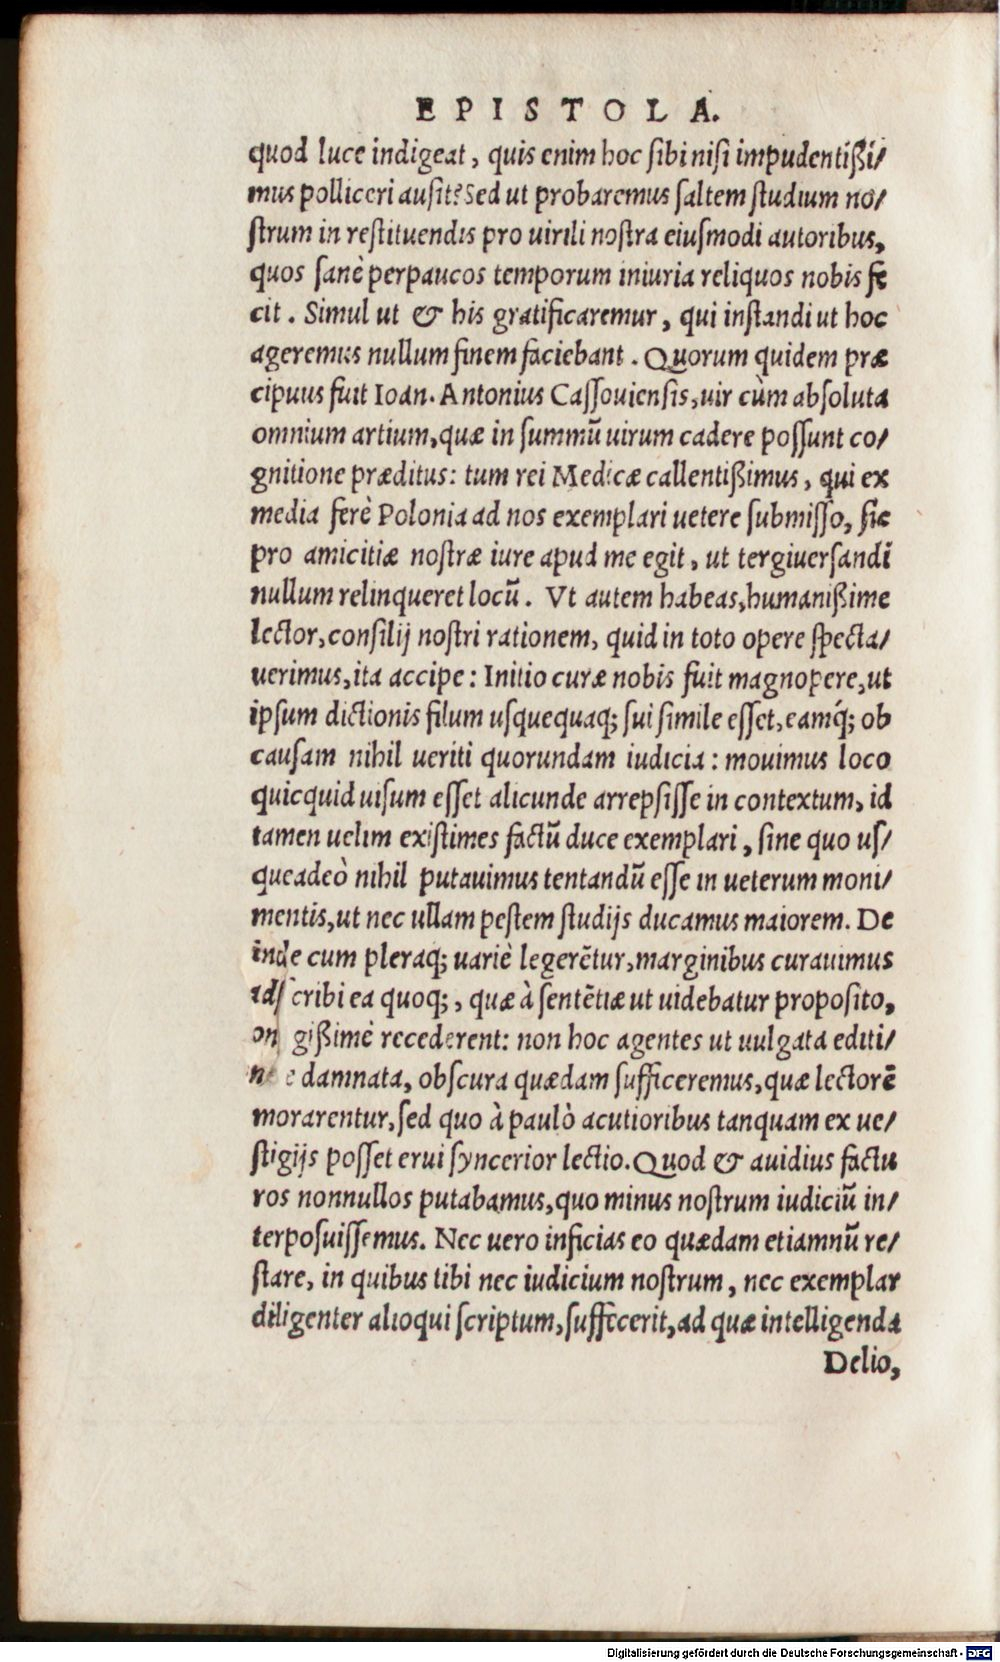 EPISTOLA.
quod luce indigeat, quis enim hoc sibi nisi impudentißi/
mus polliceri ausit? Sed ut probaremus saltem studium no/
strum in restituendis pro uirili nostra eiusmodi autoribus,
quos sanè perpaucos temporum iniuria reliquos nobis fe
cit. Simul ut & his gratificaremur, qui instandi ut hoc
ageremus nullum finem faciebant. Quorum quidem præ
cipuus fuit Ioan. Antonius Cassouiensis, uir cùm absoluta
omnium artium, quæ in summū uirum cadere possunt co/
gnitione præditus: tum rei Medicæ callentißimus, qui ex
media ferè Polonia ad nos exemplari uetere submisso, sic
pro amicitiæ nostræ iure apud me egit, ut tergiuersandi
nullum relinqueret locū. Vt autem habeas, humanißime
lector, consilij nostri rationem, quid in toto opere specta/
uerimus, ita accipe: Initio curæ nobis fuit magnopere, ut
ipsum dictionis filum usquequaq; sui simile esset, eamq́; ob
causam nihil ueriti quorundam iudicia: mouimus loco
quicquid uisum esset alicunde arrepsisse in contextum, id
tamen uelim existimes factū duce exemplari, sine quo us/
queadeò nihil putauimus tentandū esse in ueterum moni/
mentis, ut nec ullam pestem studijs ducamus maiorem. De
inde cum pleraq; uariè legerētur, marginibus curauimus
adscribi ea quoq;, quæ à sentētiæ ut uidebatur proposito,
on gißimè recederent: non hoc agentes ut uulgata editi/
n e damnata, obscura quædam sufficeremus, quæ lectorē
morarentur, sed quo à paulò acutioribus tanquam ex ue/
stigijs posset erui syncerior lectio. Quod & auidius factu
ros nonnullos putabamus, quo minus nostrum iudiciū in/
terposuissemus. Nec uero inficias eo quædam etiamnū re/
stare, in quibus tibi nec iudicium nostrum, nec exemplar
diligenter alioqui scriptum, suffecerit, ad quæ intelligenda
Delio,
Digitalisierung gefördert durch die Deutsche Forschungsgemeinschaft - DFG